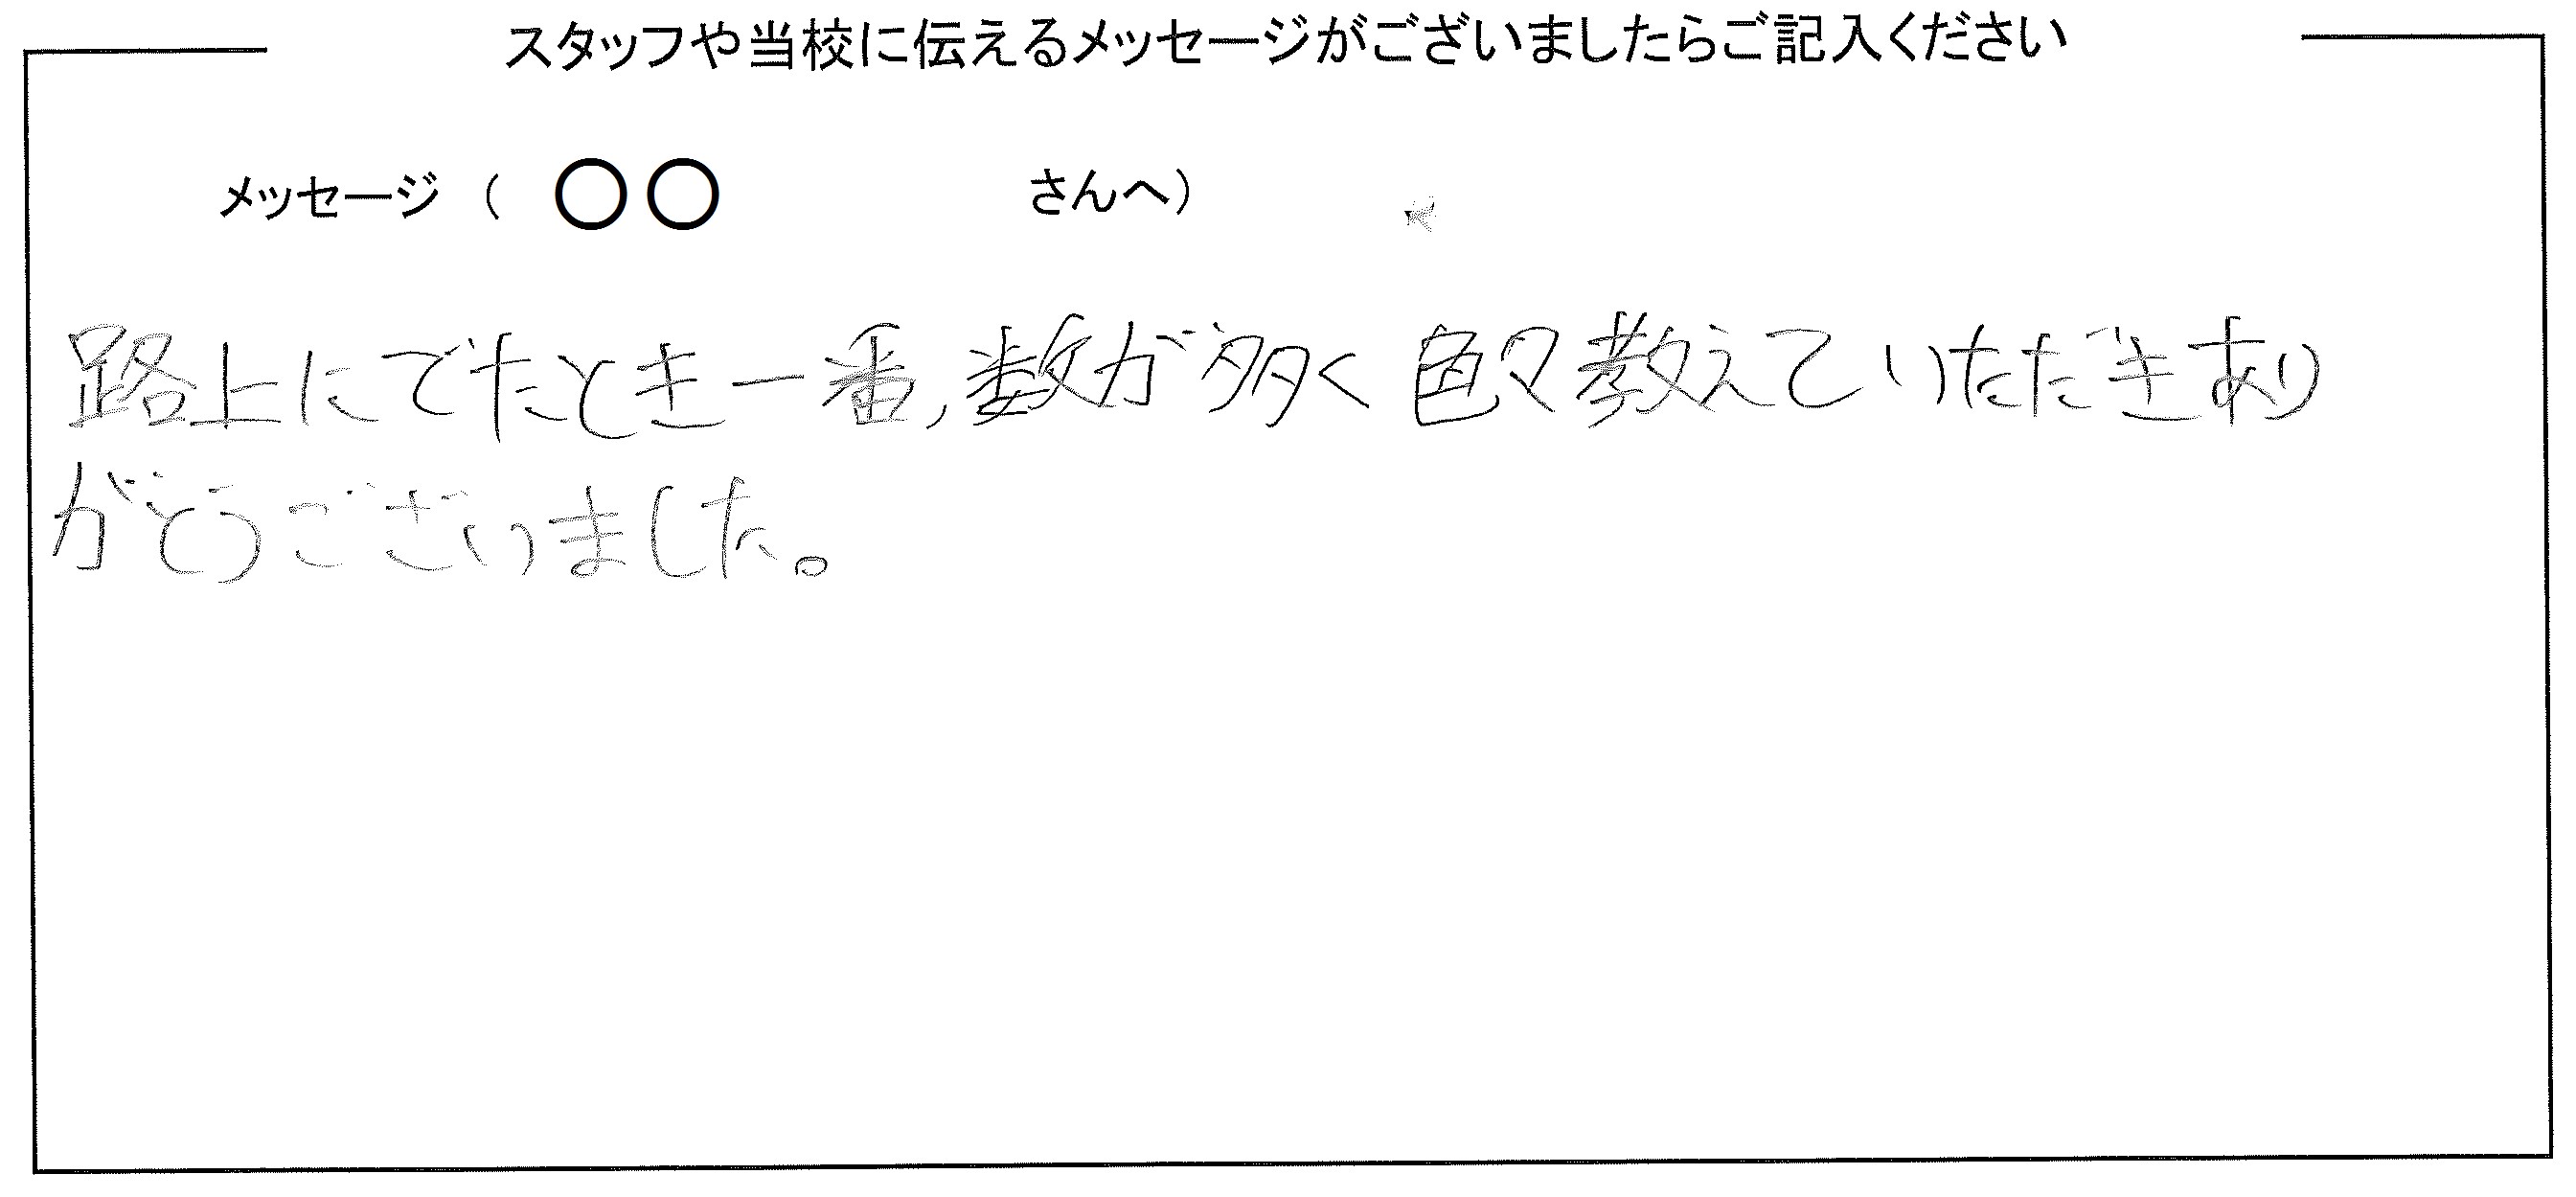 スタッフや当校に伝えるメッセージがございましたらご記入ください
メッセージ（ 〇〇 さんへ）
路上にでたとき一番,数が多く色々教えていただきあり
がとうございました。